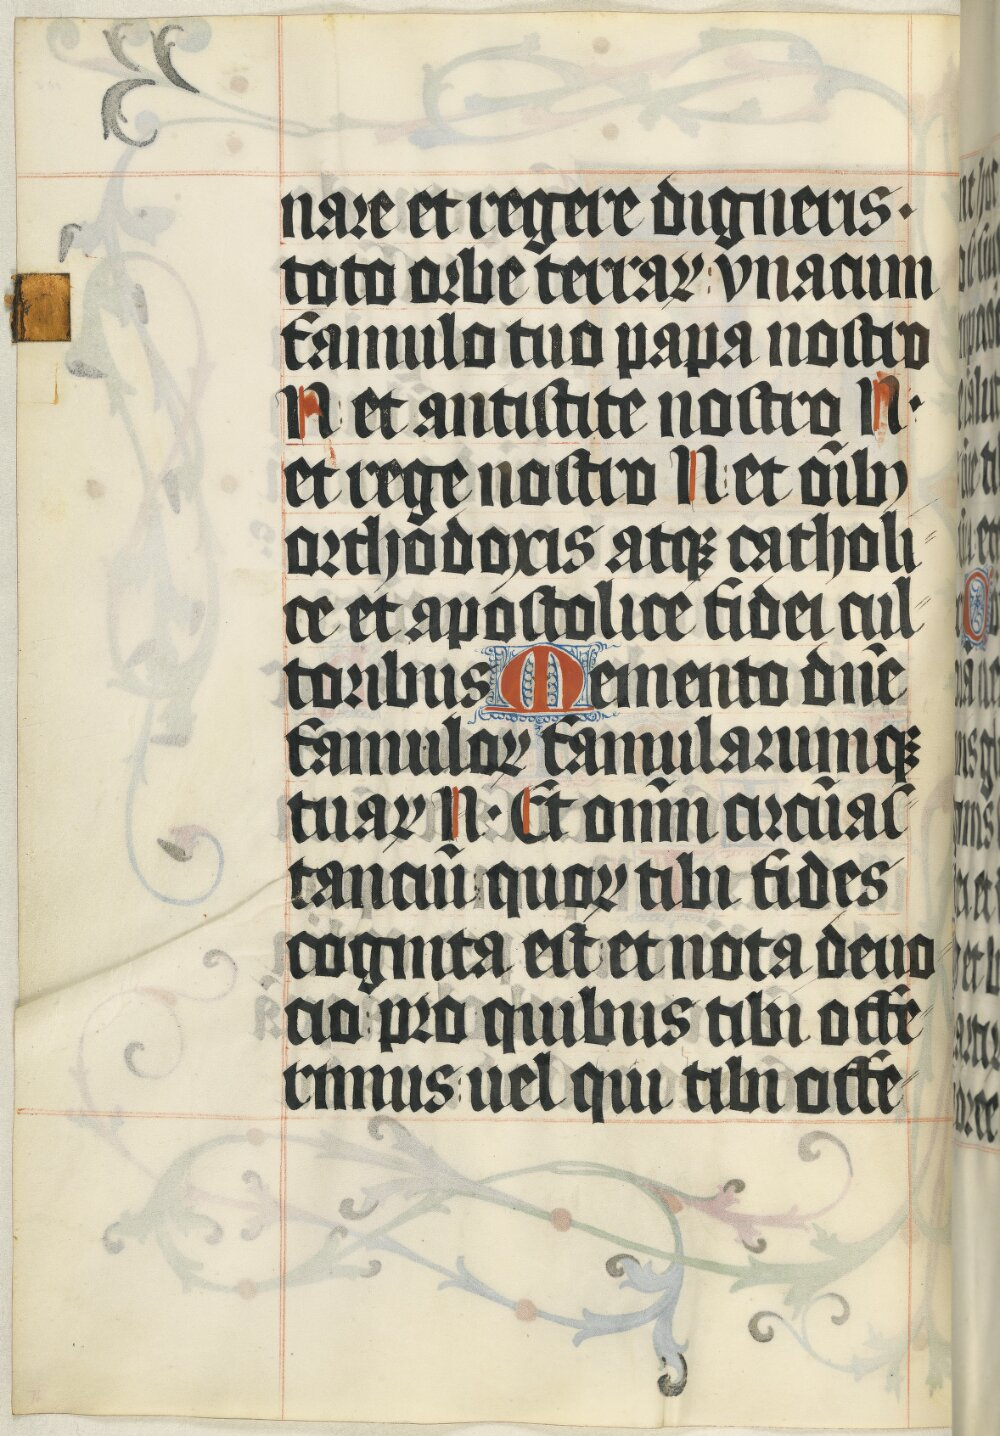 nare et regere digneris·
toto orbe terraꝝ: vnacum
famulo tuo papa nostro
N et antistite nostro N·
et rege nostro N: et oīb9
orthodoxis atqꝫ catholi
ce et apostolice fidei cul
toribus Memento dn̄e
famuloꝝ famularumqꝫ
tuaꝝ N· Et omn̄i circūas
tanciū quoꝝ tibi fides
cognita est et nota deuo
cio pro quibus tibi offe
rimus uel qui tibi offe